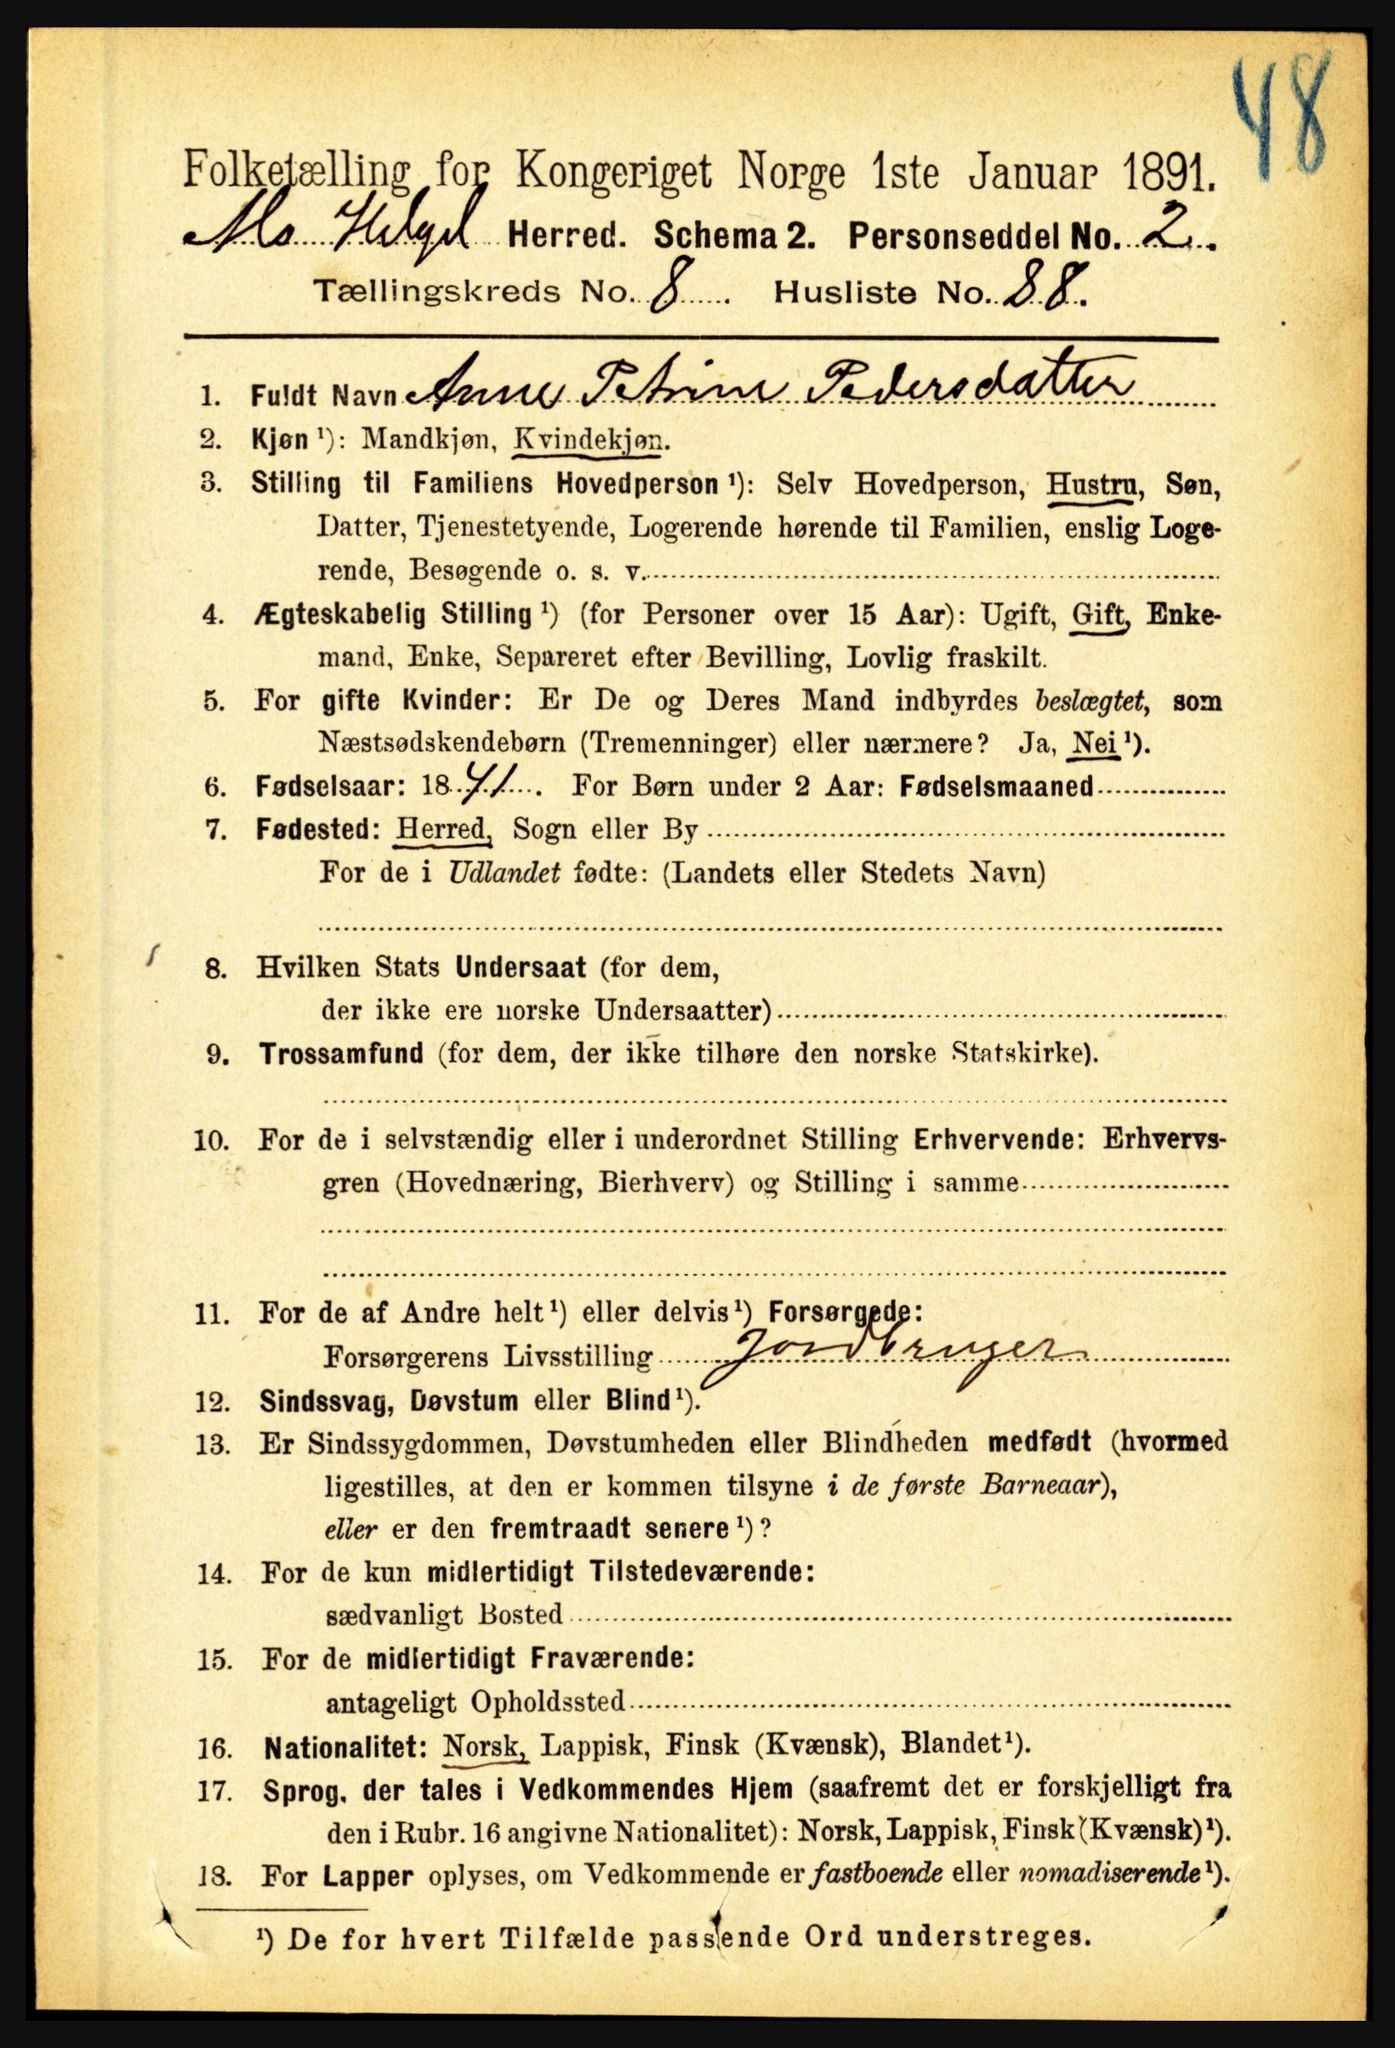 48
Folketælling for Kongeriget Norge 1ste Januar 1891.
Mo Helgel Herred. Schema 2. Personseddel No. 2.
Tællingskreds No. 8. Husliste No. 88.
1. Fuldt Navn Anne Petrine Pedersdatter
2. Kjøn ¹): Mandkjøn, Kvindekjøn.
3. Stilling til Familiens Hovedperson ¹): Selv Hovedperson, Hustru, Søn,
Datter, Tjenestetyende, Logerende hørende til Familien, enslig Loge-
rende, Besøgende o. s. v.
4. Ægteskabelig Stilling ¹) (for Personer over 15 Aar): Ugift, Gift, Enke-
mand, Enke, Separeret efter Bevilling, Lovlig fraskilt.
5. For gifte Kvinder: Er De og Deres Mand indbyrdes beslægtet, som
Næstsødskendebørn (Tremenninger) eller nærmere? Ja, Nei ¹).
6. Fødselsaar: 1841. For Børn under 2 Aar: Fødselsmaaned
7. Fødested: Herred, Sogn eller By
For de i Udlandet fødte: (Landets eller Stedets Navn)
8. Hvilken Stats Undersaat (for dem,
der ikke ere norske Undersaatter)
9. Trossamfund (for dem, der ikke tilhøre den norske Statskirke).
10. For de i selvstændig eller i underordnet Stilling Erhvervende: Erhvervs-
gren (Hovednæring, Bierhverv) og Stilling i samme
11. For de af Andre helt ¹) eller delvis ¹) Forsørgede:
Forsørgerens Livsstilling Jordbruger
12. Sindssvag, Døvstum eller Blind ¹).
13. Er Sindssygdommen, Døvstumheden eller Blindheden medfødt (hvormed
ligestilles, at den er kommen tilsyne i de første Barneaar),
eller er den fremtraadt senere ¹)?
14. For de kun midlertidigt Tilstedeværende:
sædvanligt Bosted
15. For de midlertidigt Fraværende:
antageligt Opholdssted
16. Nationalitet: Norsk, Lappisk, Finsk (Kvænsk), Blandet ¹).
17. Sprog, der tales i Vedkommendes Hjem (saafremt det er forskjelligt fra
den i Rubr. 16 angivne Nationalitet): Norsk, Lappisk, Finsk (Kvænsk) ¹).
18. For Lapper oplyses, om Vedkommende er fastboende eller nomadiserende ¹).
¹) De for hvert Tilfælde passende Ord understreges.